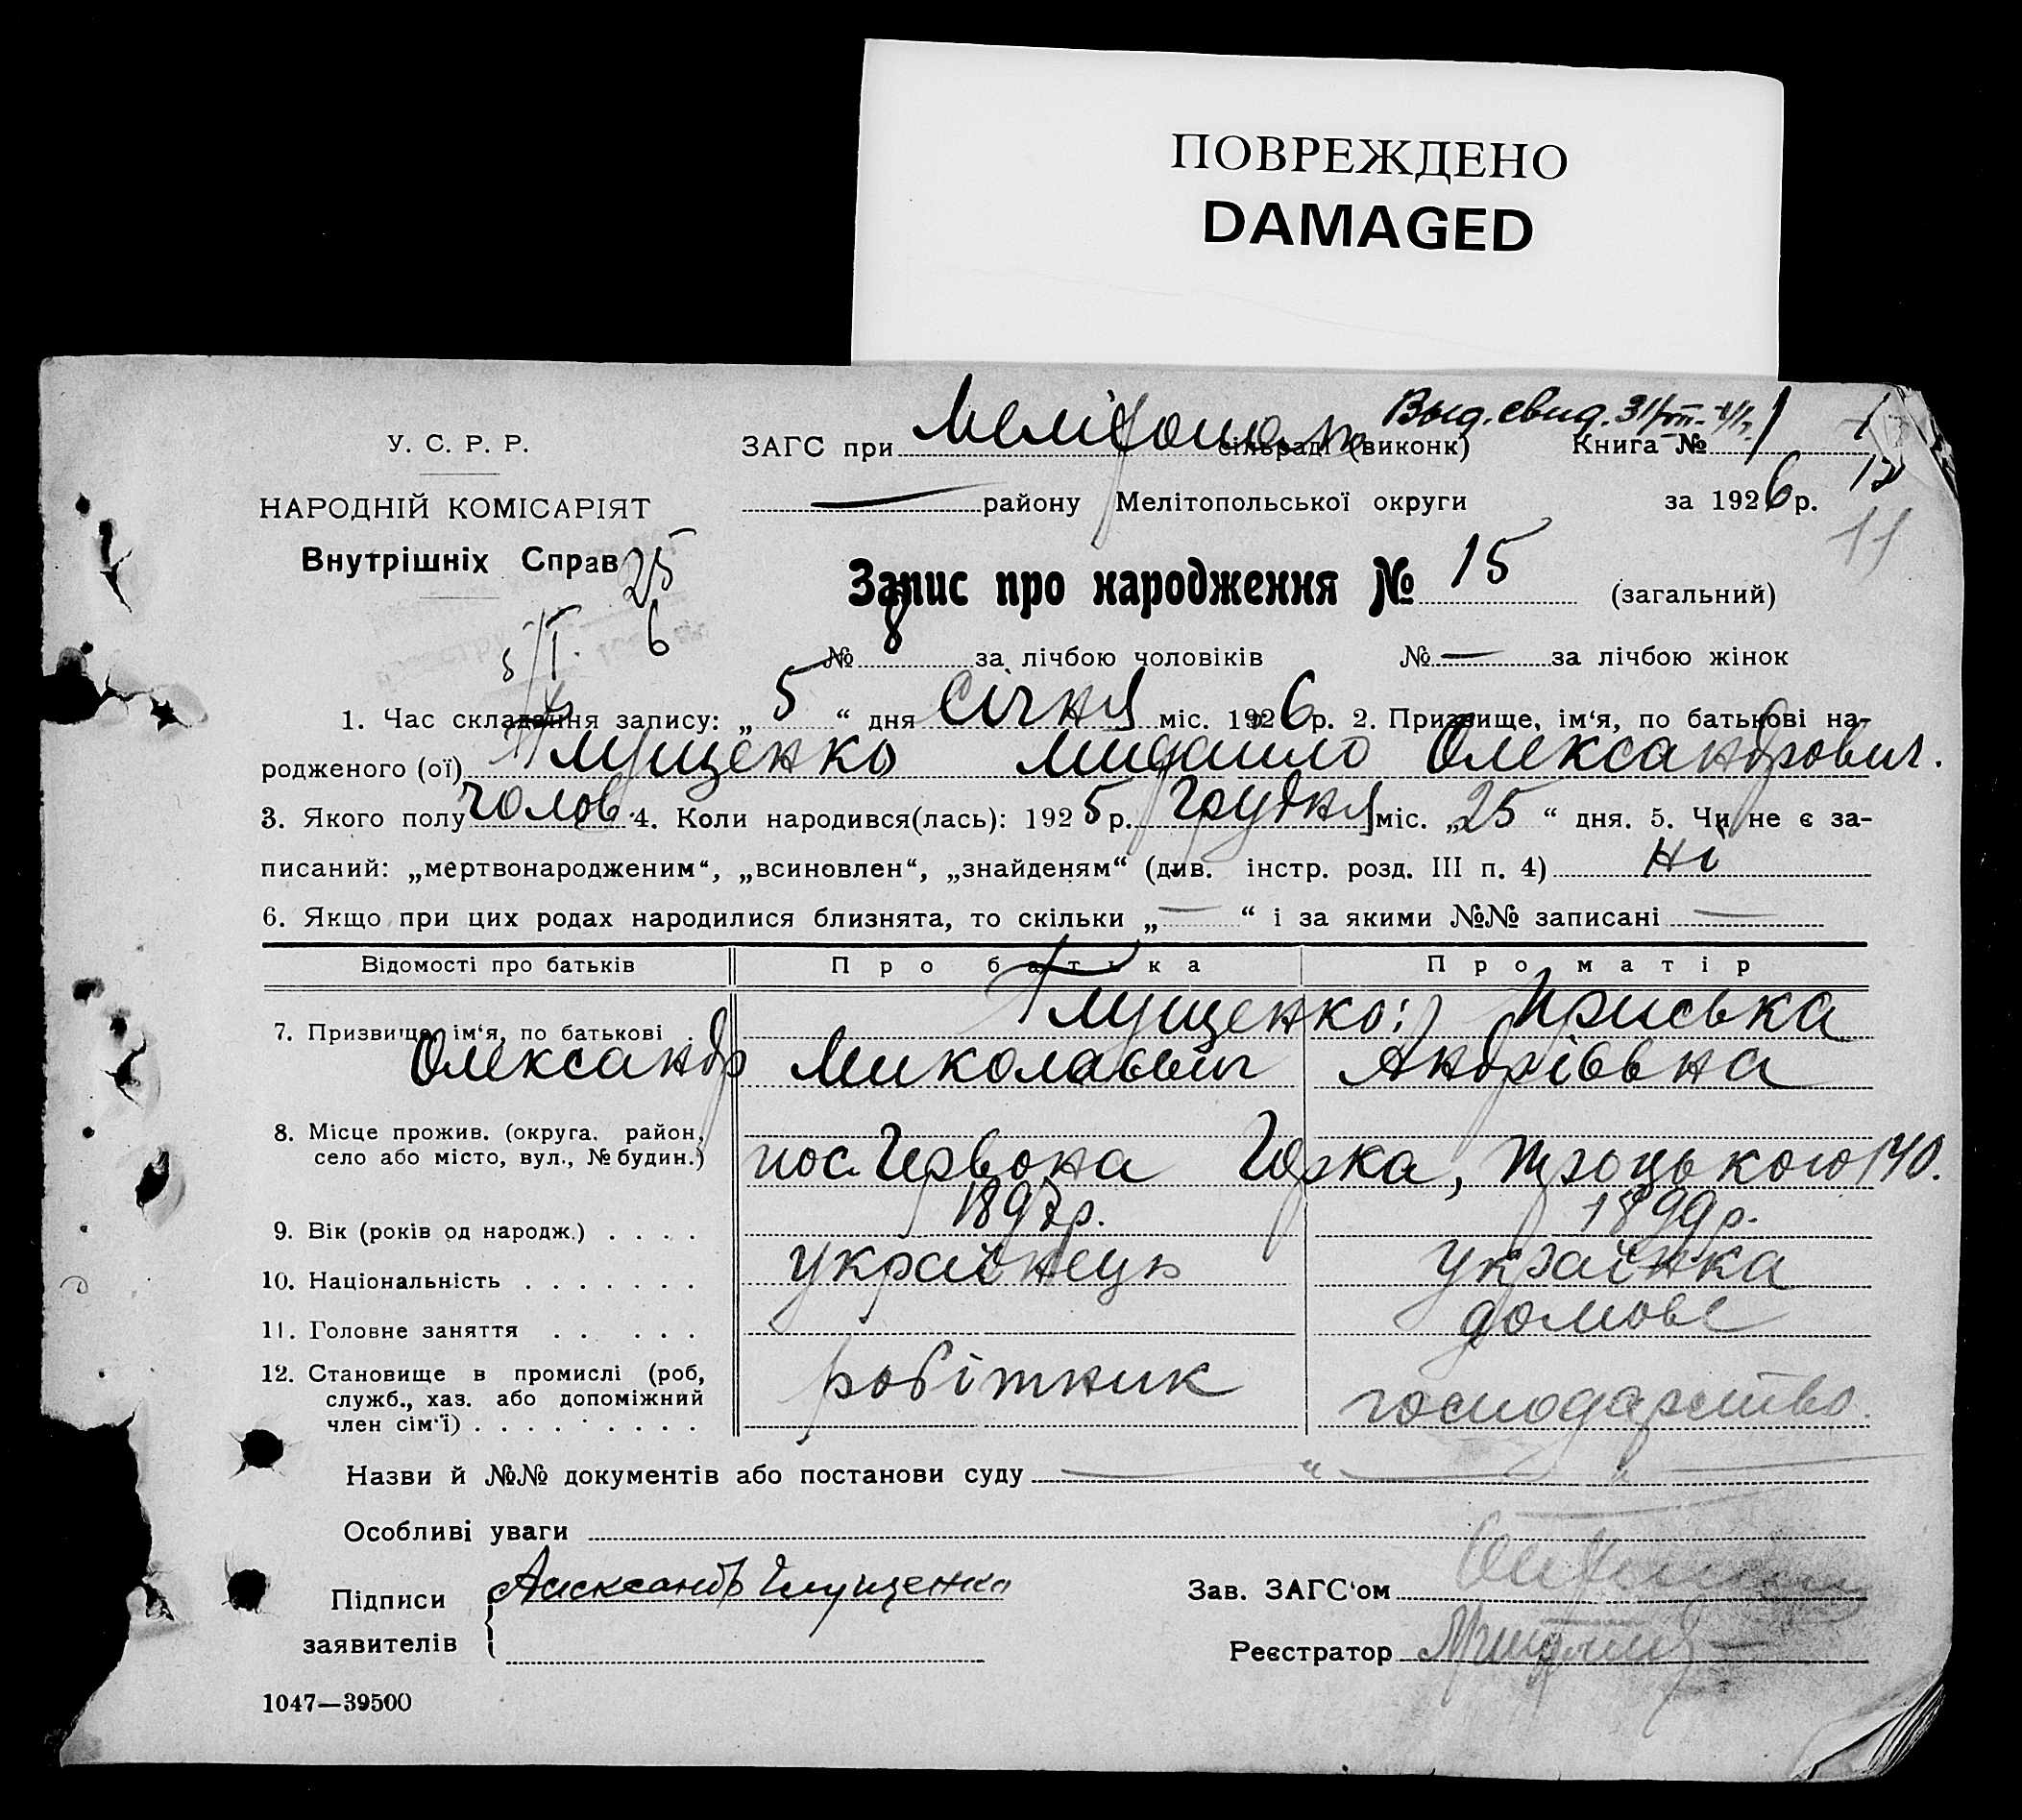 ПОВРЕЖДЕНО
DAMAGED
Выд. свид. 31/
У. С. Р. Р.
ЗАГС при Мелітополь сільраді (виконк) Книга № 1
НАРОДНІЙ КОМІСАРІЯТ
району Мелітопольської округи за 1926 р.
12
11
Внутрішніх Справ
25
6
5/I.
Запис про народження № 15 (загальний)
№ 8 за лічбою чоловіків № — за лічбою жінок
1. Час складання запису: „ 5 “ дня Січня міс. 1926 р. 2. Призвище, ім‘я, по батькові на-
родженого (ої) Глущенко Михайло Олександрович.
3. Якого полу чолов. 4. Коли народився(лась): 1925 р. Грудня міс. „ 25 “ дня. 5. Чи не є за-
писаний: „мертвонародженим“, „всиновлен“, „знайденям“ (див. інстр. розд. III п. 4) ні
6. Якщо при цих родах народилися близнята, то скільки „ — “ і за якими №№ записані —
Відомості про батьків Про батька Про матір
Глущенко: Приська
7. Призвище, ім‘я, по батькові .
Олександр Миколаєвич Андріївна
8. Місце прожив. (округа, район,
село або місто, вул., № будин.)
пос. Червона Гірка, Троцького 140.
9. Вік (років од народж.) . . . . 1897р. 1899р.
10. Національність . . . . . . . українець українка
11. Головне заняття . . . . . домове
12. Становище в промислі (роб,
служб., хаз. або допоміжний
член сім‘ї) . . . . . . . . .
робітник господарство.
Назви й №№ документів або постанови суду — “ — “ —
Особливі уваги
Підписи
заявителів
Александр Глущенко
Зав. ЗАГС‘ом
Реєстратор
1047—39500